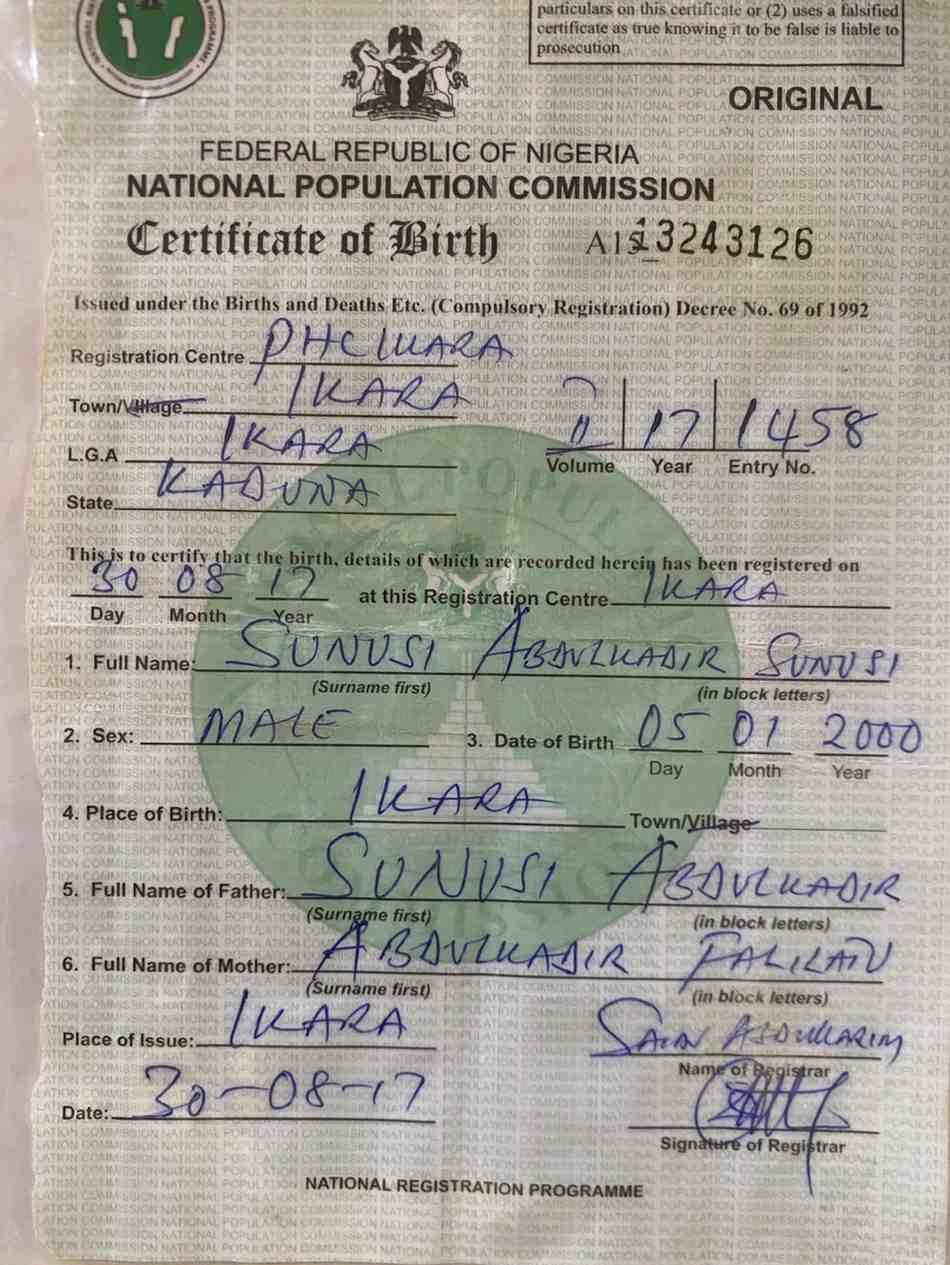 particulars on this certificate or (2) uses a falsified
certificate as true knowing it to be false is liable to
prosecution
ORIGINAL
FEDERAL REPUBLIC OF NIGERIA
NATIONAL POPULATION COMMISSION
Certificate of Birth 13243126
Issued under the Births and Deaths Etc. (Compulsory Registration) Decree No. 69 of 1992
Registration Centre PHC IKARA
Town/Village IKARA
L.G.A IKARA
State KADUNA
17 1458
Volume Year Entry No.
This is to certify that the birth, details of which are recorded herein has been registered on
30 08 17 at this Registration Centre IKARA
Day Month Year
1. Full Name: SUNUSI ABDULKADIR SUNUSI
(Surname first) (in block letters)
2. Sex: MALE 3. Date of Birth 05 01 2000
Day Month Year
4. Place of Birth: IKARA Town/Village
5. Full Name of Father: SUNUSI ABDULKADIR
(Surname first) (in block letters)
6. Full Name of Mother: ABDULKADIR FALILATU
(Surname first) (in block letters)
Place of Issue: IKARA
Name of Registrar
Date: 30-08-17
Signature of Registrar
NATIONAL REGISTRATION PROGRAMME